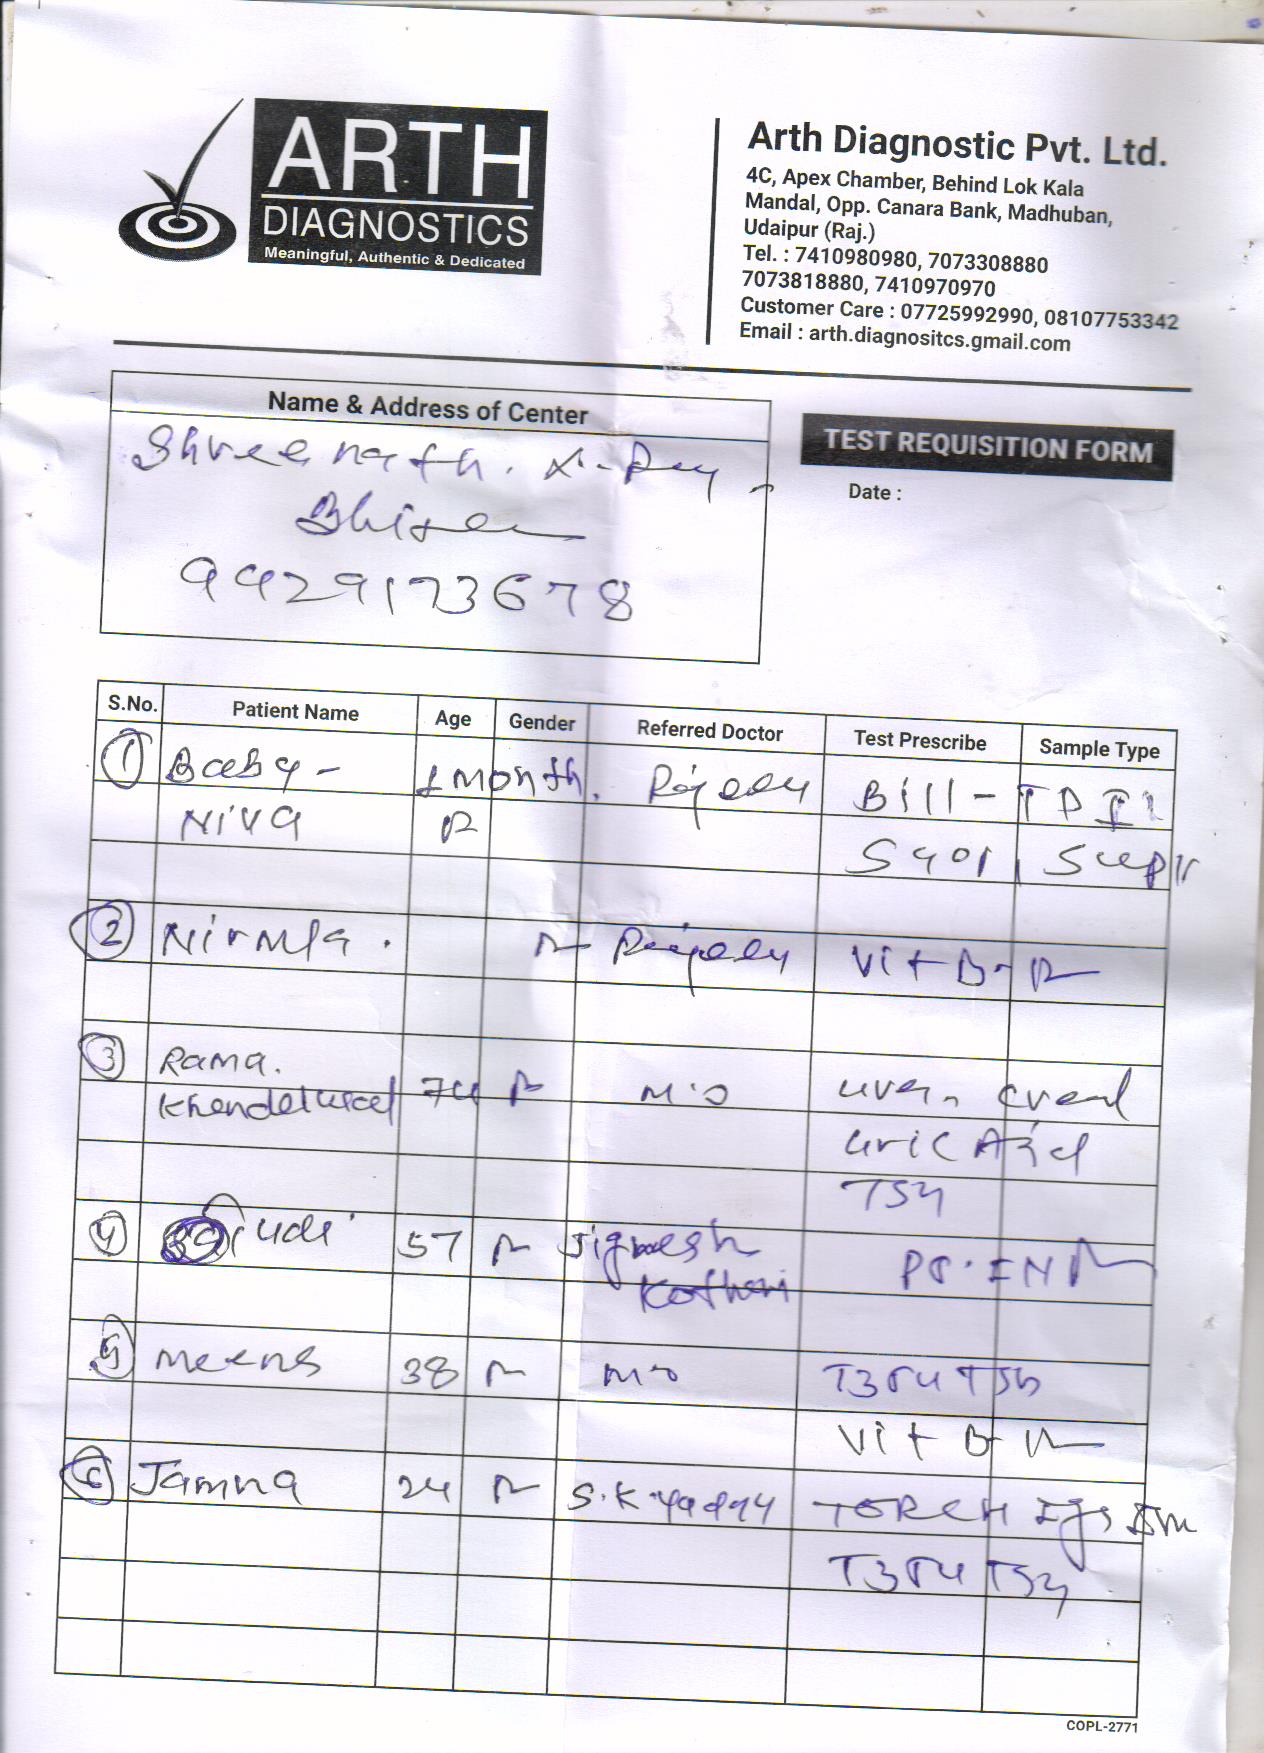 ARTH
DIAGNOSTICS
Meaningful, Authentic & Dedicated
Arth Diagnostic Pvt. Ltd.
4C, Apex Chamber, Behind Lok Kala
Mandal, Opp. Canara Bank, Madhuban,
Udaipur (Raj.)
Tel. : 7410980980, 7073308880
7073818880, 7410970970
Customer Care : 07725992990, 08107753342
Email : arth.diagnositcs.gmail.com
Name & Address of Center
Shreenath. X-Ray
9929173678
TEST REQUISITION FORM
Date :
S.No. Patient Name Age Gender Referred Doctor Test Prescribe Sample Type
1 Baby - 1 month. Bill -
Niva
2 Nirmla. Vit B-12
3 Rama. 74 M.O
Uric Acid
TSH
4 57 Jignesh
Kothari
5 Meena 38 M.O T3T4 TSH
Vit B12
6 Jamna 24 S.K yadav TORCH
T3T4 TSH
COPL-2771